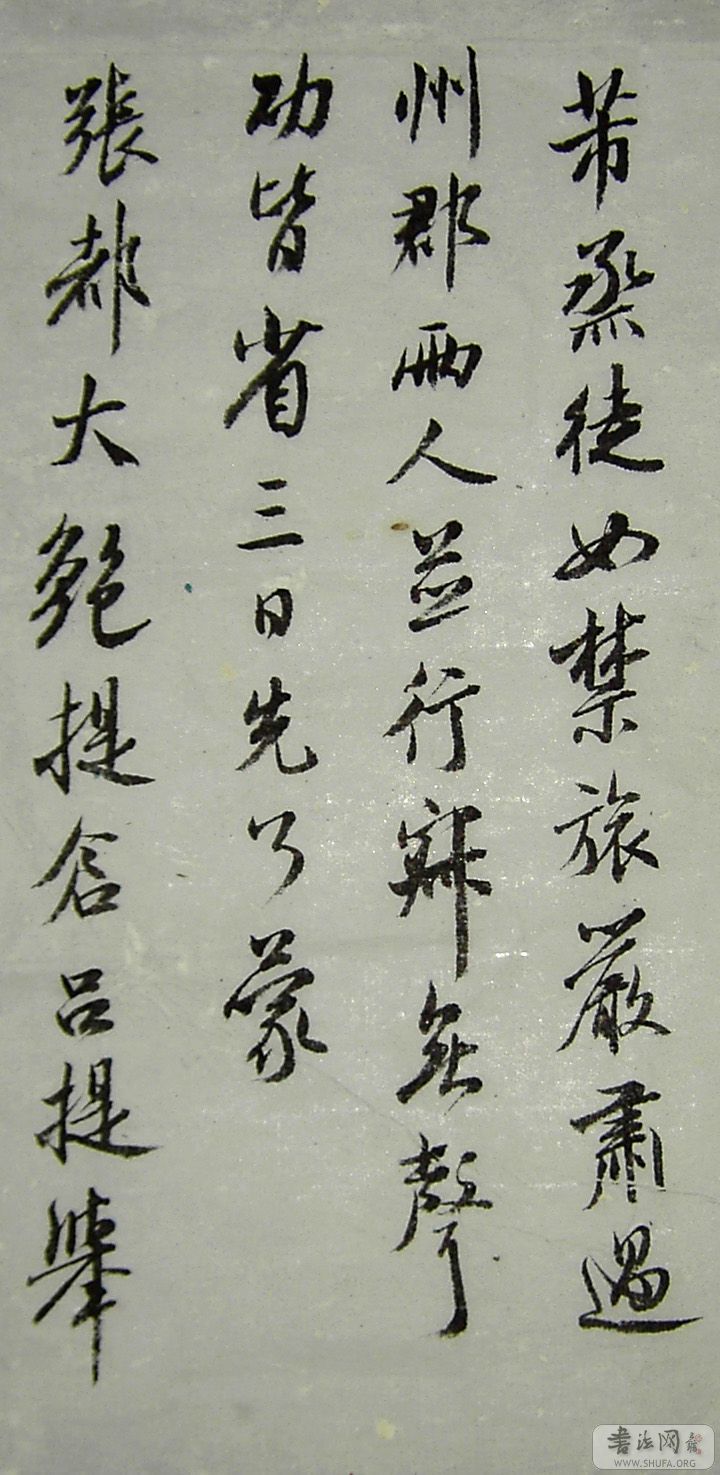 芾烝徒如禁旅嚴肅過
州郡兩人並行寂無聲
功皆省三日先了蒙
張都大鮑提倉呂提舉
書法网
WWW.SHUFA.ORG